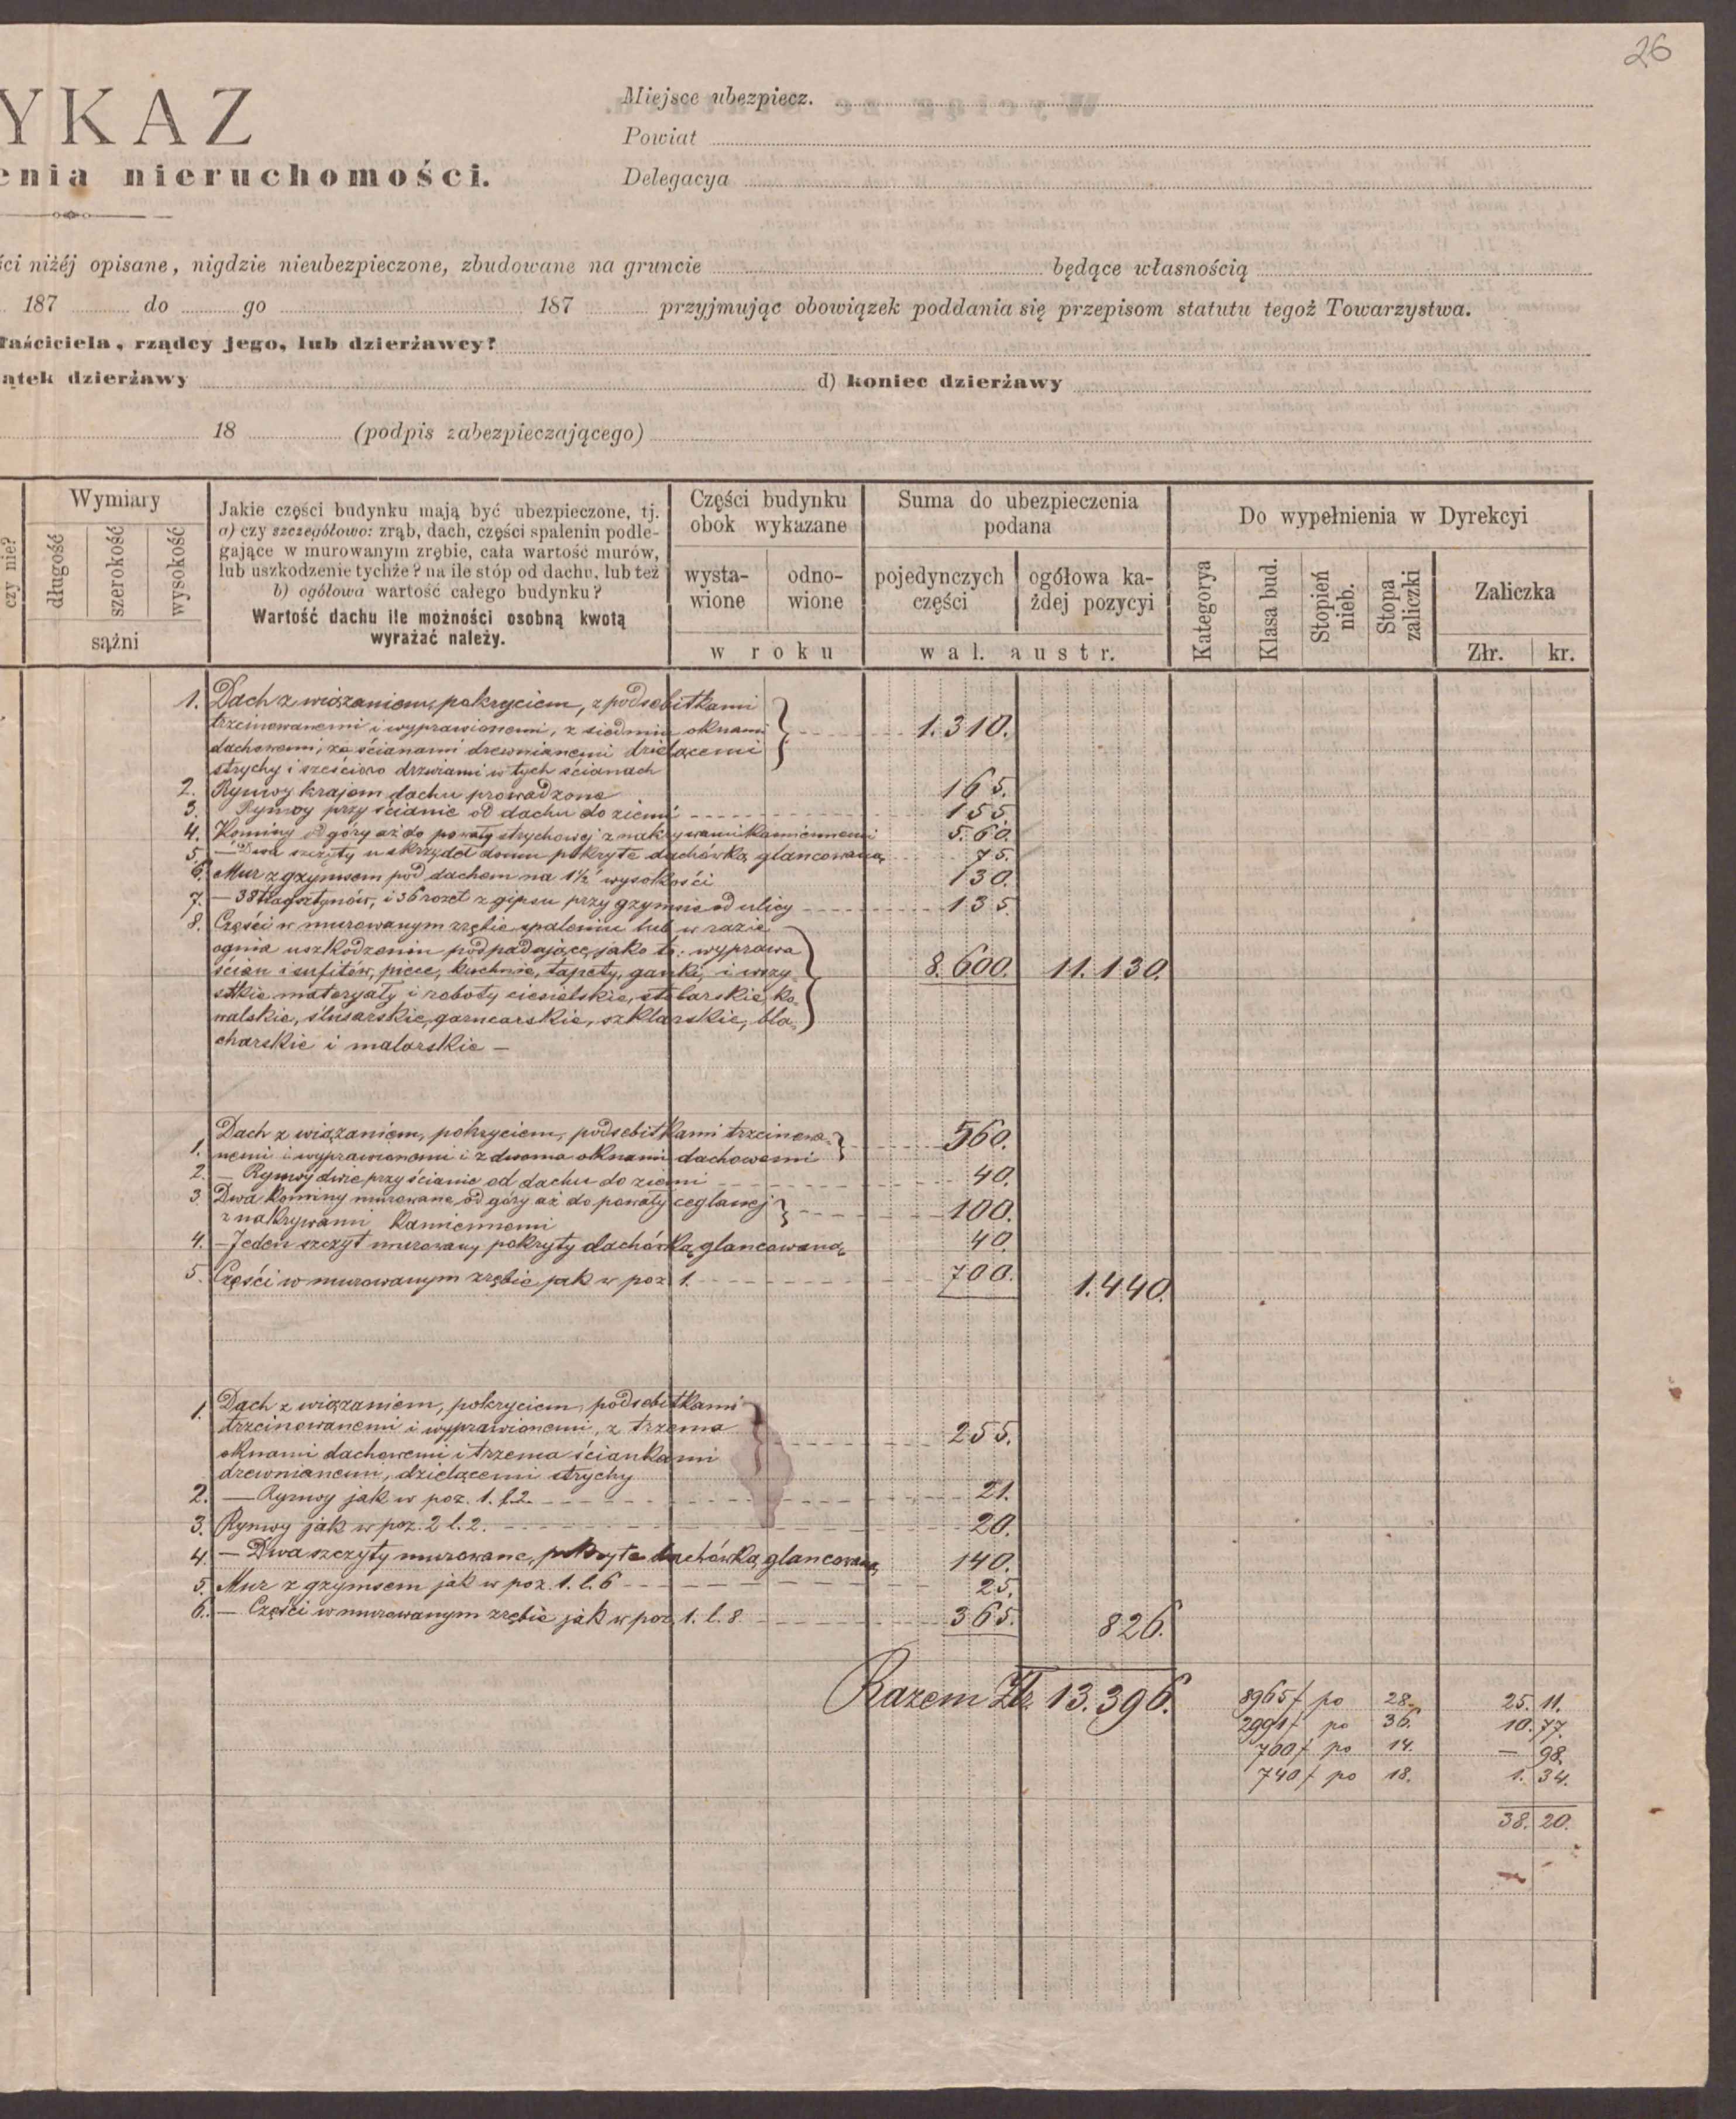 26
YKAZ
enia nieruchomości.
Miejsce ubezpiecz.
Powiat
Delegacya
ści niżéj opisane, nigdzie nieubezpieczone, zbudowane na gruncie będące własnością
187 do go 187 przyjmując obowiązek poddania się przepisom statutu tegoż Towarzystwa.
łaściciela, rządcy jego, lub dzierżawcy?
ątek dzierżawy d) koniec dzierżawy
18 (podpis zabezpieczającego)
czy nie?
Wymiary
długość
szerokość
wysokość
sążni
Jakie części budynku mają być ubezpieczone, tj.
a) czy szczegółowo: zrąb, dach, części spaleniu podle-
gające w murowanym zrębie, cała wartość murów,
lub uszkodzenie tychże? na ile stóp od dachu, lub też
b) ogółowa wartość całego budynku?
Wartość dachu ile możności osobną kwotą
wyrażać należy.
Części budynku
obok wykazane
wysta-
wione
odno-
wione
w roku
Suma do ubezpieczenia
podana
pojedynczych
części
ogółowa ka-
żdej pozycyi
wal. austr.
Do wypełnienia w Dyrekcyi
Kategorya
Klasa bud.
Stopień
nieb.
Stopa
zaliczki
Zaliczka
Złr.
kr.
1. Dach z wiązaniem, pokryciem, z podsebitkami
trzcinowanemi i wyprawionemi, z siedmiu oknami 1.310.
dachowemi, ze ścianami drewnianemi dzielącemi
strychy i sześcioro drzwiami w tych ścianach
2. Rynwy krajem dachu prowadzone 165.
3. Rynwy przy ścianie od dachu do ziemi 155.
4. Kominy od góry aż do powały strychowej z nakrywami kamiennemi 560.
5. — Dwa szczyty u skrzydeł domu pokryte dachówką glancowaną 75.
6. Mur z gzymsem pod dachem na 1½' wysokości 130.
7. — 38 tragsztynów, i 36 rozet z gipsu przy gzymsie od ulicy 135.
8. Części w murowanym zrębie spaleniu lub w razie
ognia uszkodzeniu podpadające, jako to: wyprawa
ścian i sufitów, piece, kuchnie, tapety, ganki, i wszy 8.600. 11.130.
stkie materyały i roboty ciesielskie, stolarskie, ko-
walskie, ślusarskie, garncarskie, szklarskie, bla-
charskie i malarskie —
1. Dach z wiązaniem, pokryciem, podsebitkami trzcinowa- 560.
nemi i wyprawionemi i z dwoma oknami dachowemi
2. — Rynwy dwie przy ścianie od dachu do ziemi 40.
3. Dwa kominy murowane, od góry aż do powały ceglanej 100.
z nakrywami kamiennemi
4. — Jeden szczyt murowany pokryty dachówką glancowaną 40.
5. Części w murowanym zrębie jak w poz 1. 700. 1.440.
1. Dach z wiązaniem, pokryciem, podsebitkami
trzcinowanemi i wyprawionemi, z trzema 255.
oknami dachowemi i trzema ściankami
drewnianemi, dzielącemi strychy
2. — Rynwy jak w poz. 1. l. 2. 21.
3. Rynwy jak w poz. 2 l. 2. 20.
4. — Dwa szczyty murowane, pokryte dachówką glancowaną 140.
5. Mur z gzymsem jak w poz. 1. l. 6 25.
6. — Części w murowanym zrębie jak w poz. 1. l. 8 365. 826.
Razem Złr. 13.396.
8965 f po 28. 25. 11.
2991 f po 36. 10. 77.
700 f po 14. — 98.
740 f po 18. 1. 34.
38. 20.